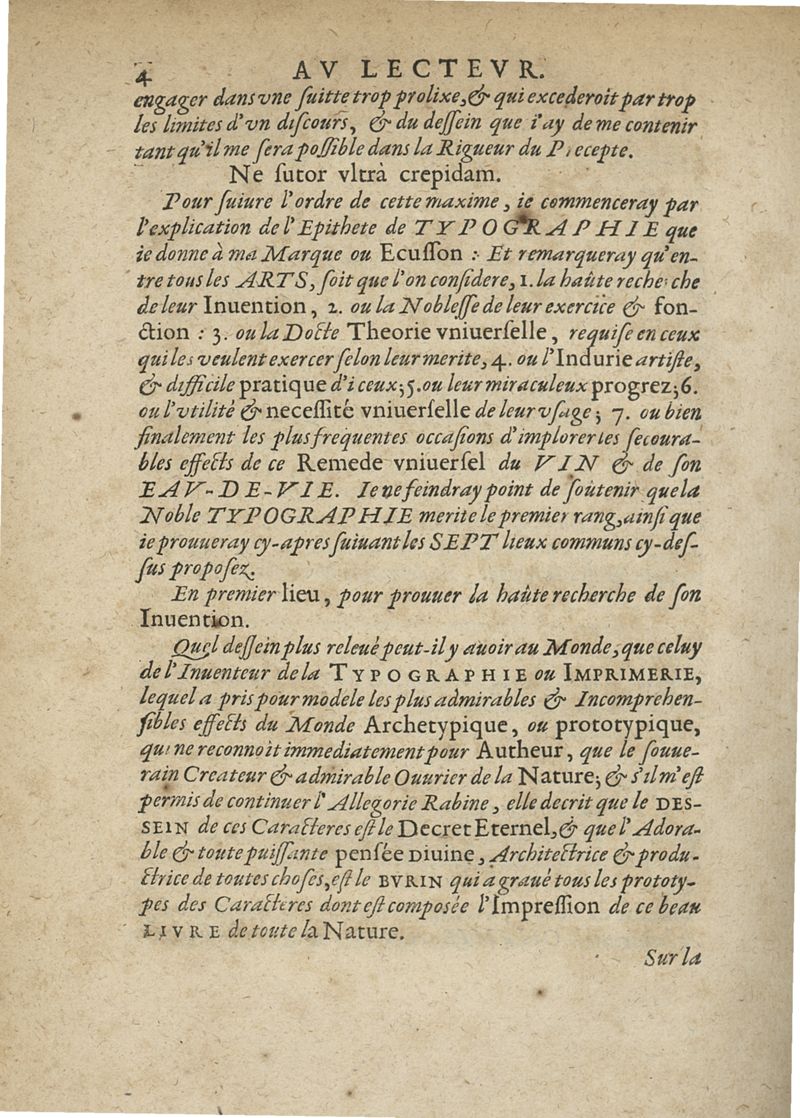 4 AV LECTEVR.
engager dans vne ſuitte trop prolixe, & qui excederoit par trop
les limites d'vn diſcours, & du deſſein que i'ay de me contenir
tant qu'il me ſera poſſible dans la Rigueur du Precepte.
Ne ſutor vltrà crepidam.
Pour ſuiure l'ordre de cette maxime, ie commenceray par
l'explication de l'Epithete de TYPOGRAPHIE que
ie donne à ma Marque ou Ecuſſon : Et remarqueray qu'en-
tre tous les ARTS, ſoit que l'on conſidere, 1. la haûte recherche
de leur Inuention, 2. ou la Nobleſſe de leur exercice & fon-
ction : 3. ou la Docte Theorie vniuerſelle, requiſe en ceux
qui les veulent exercer ſelon leur merite, 4. ou l'Indurie artiſte,
& difficile pratique d'iceux; 5. ou leur miraculeux progrez; 6.
ou l'vtilité & neceſſité vniuerſelle de leur vſage; 7. ou bien
finalement les plus frequentes occaſions d'implorer les ſecoura-
bles effects de ce Remede vniuerſel du VIN & de ſon
EAV-DE-VIE. Ie ne feindray point de ſoûtenir que la
Noble TYPOGRAPHIE merite le premier rang, ainſi que
ie prouueray cy-apres ſuiuant les SEPT lieux communs cy-deſ-
ſus propoſez.
En premier lieu, pour prouuer la haûte recherche de ſon
Inuention.
Quel deſſein plus releué peut-il y auoir au Monde, que celuy
de l'Inuenteur de la TYPOGRAPHIE ou IMPRIMERIE,
lequel a pris pour modele les plus admirables & Incomprehen-
ſibles effects du Monde Archetypique, ou prototypique,
qui ne reconnoit immediatement pour Autheur, que le ſouue-
rain Createur & admirable Ouurier de la Nature; & s'il m'eſt
permis de continuer l'Allegorie Rabine, elle decrit que le DES-
SEIN de ces Caracteres eſt le Decret Eternel, & que l'Adora-
ble & toute puiſſante penſée Diuine, Architectrice & produ-
ctrice de toutes choſes, eſt le BVRIN qui a graué tous les prototy-
pes des Caracteres dont eſt composée l'Impreſſion de ce beau
LIVRE de toute la Nature.
Sur la